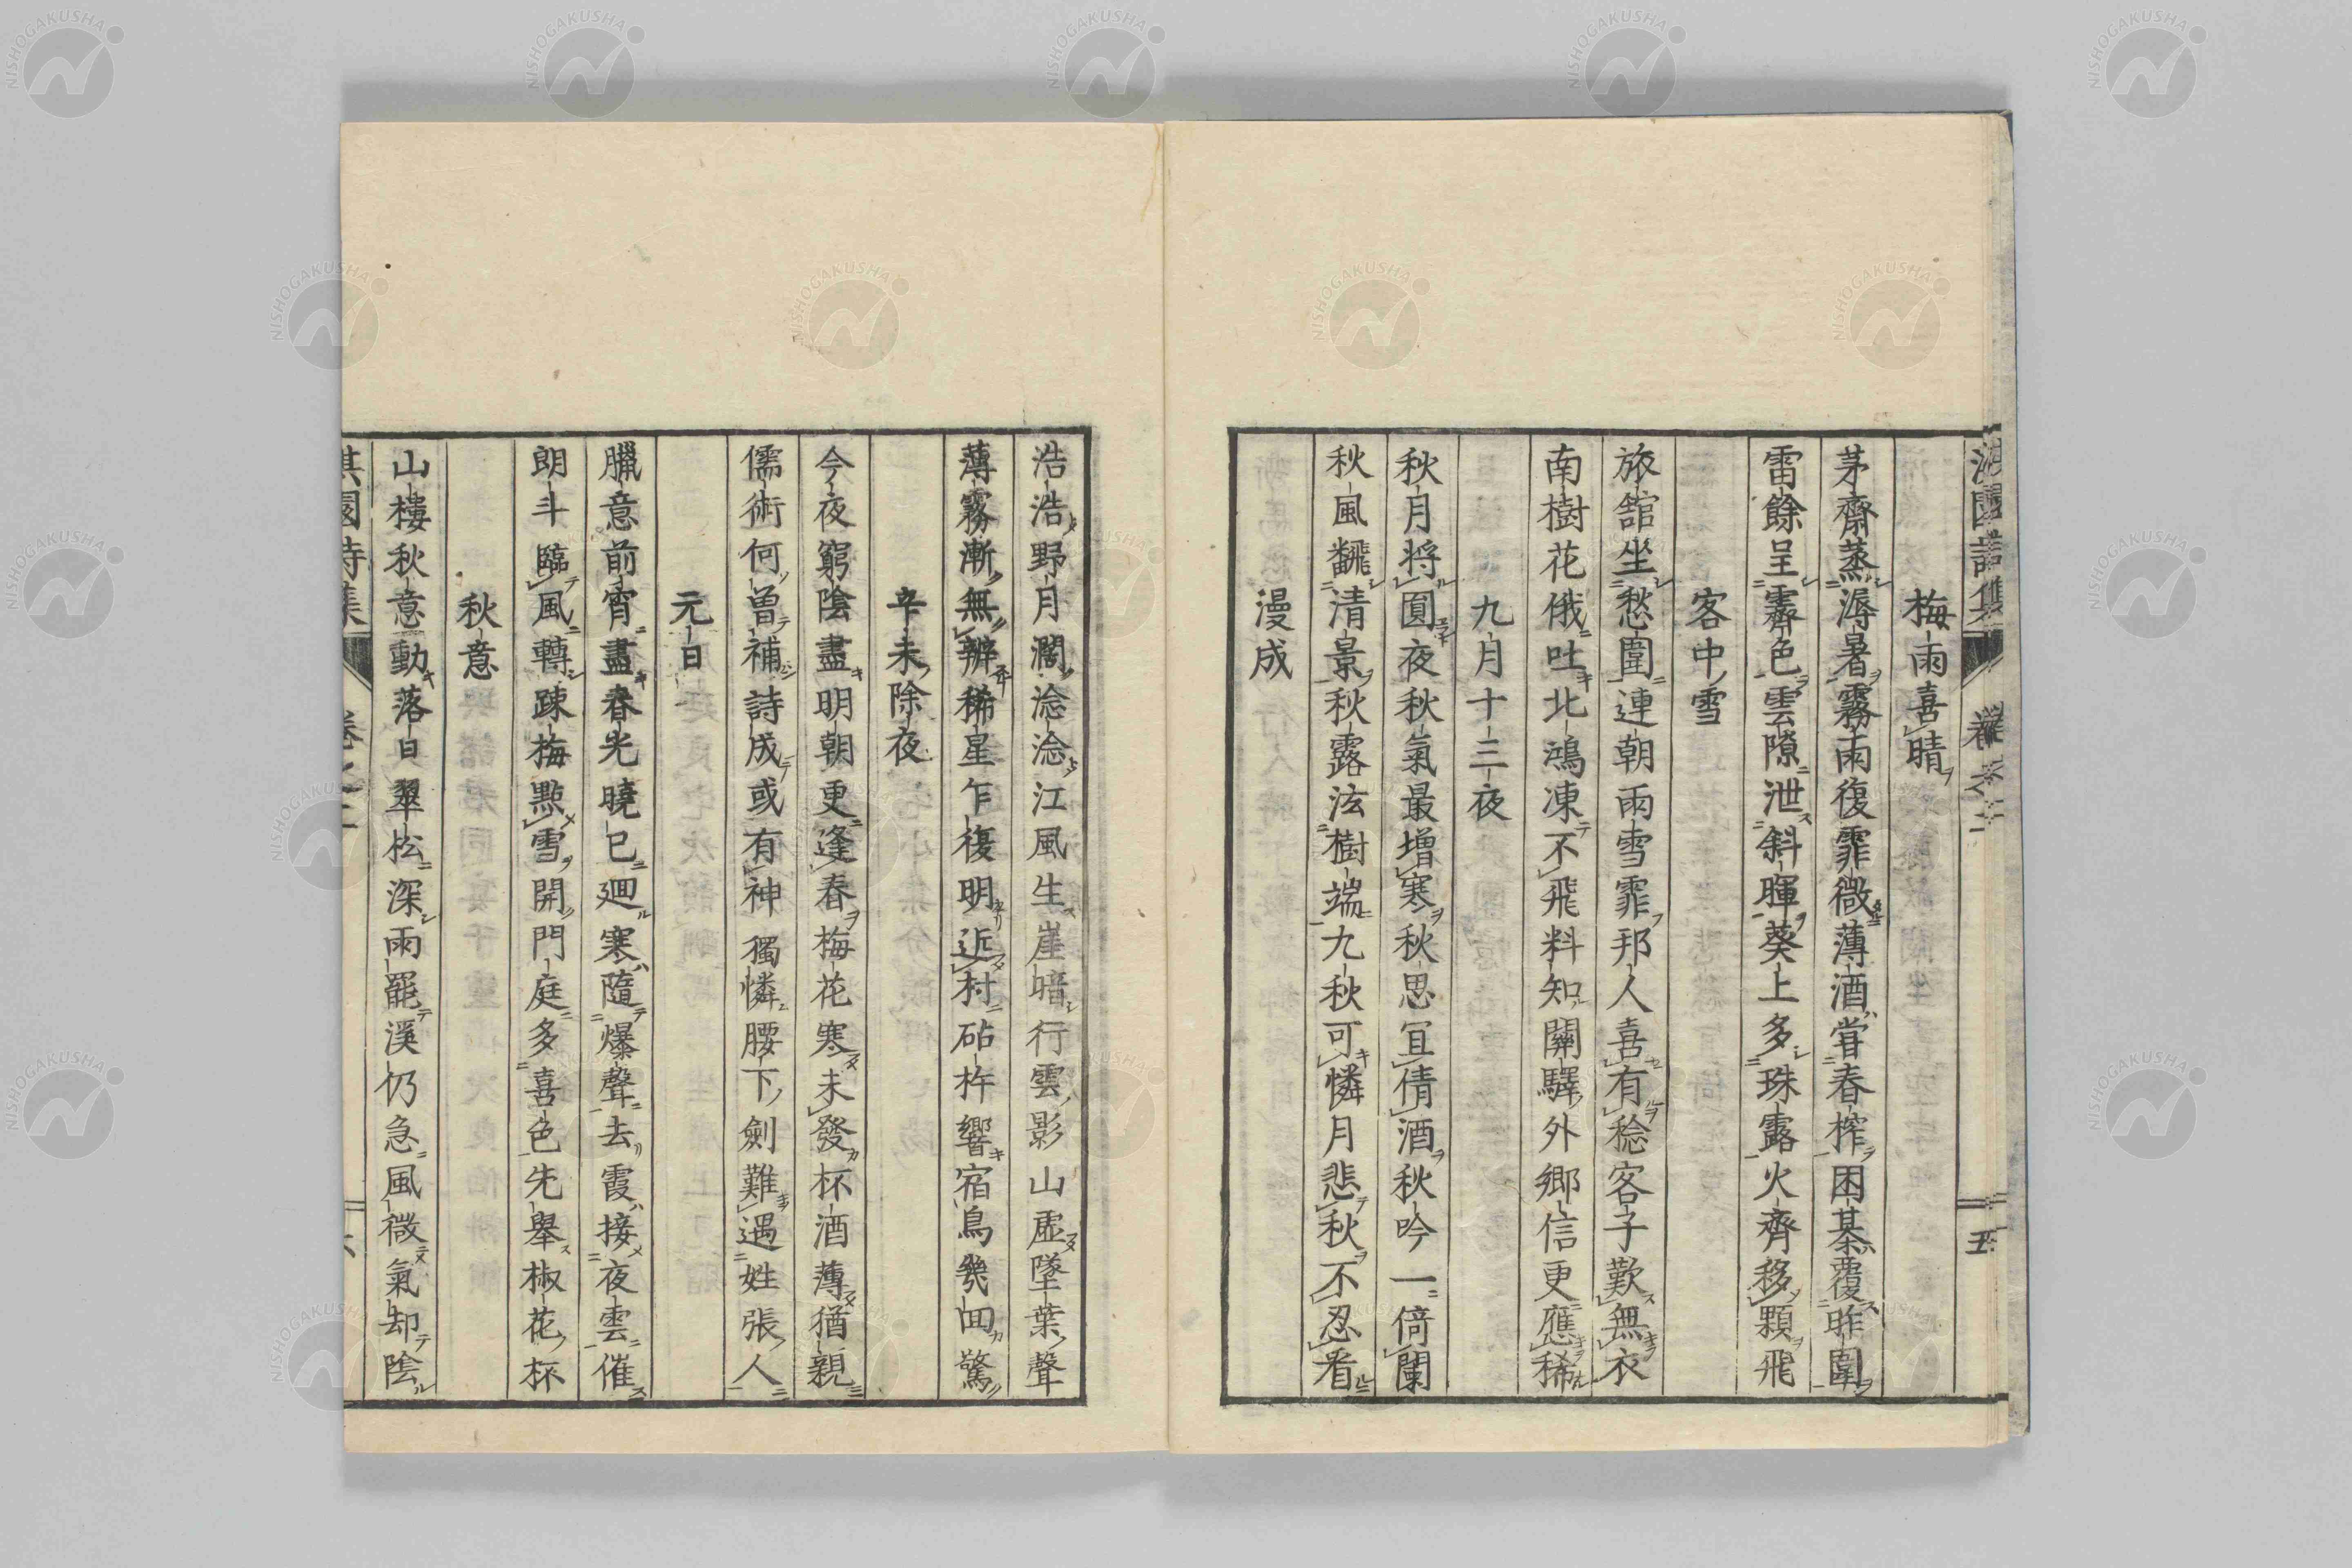 淇園詩集 卷之二 五
梅雨喜晴
茅齋蒸溽暑霧雨復霏微薄酒嘗春榨困棊覆昨圍
雷餘呈霽色雲隙泄斜暉葵上多珠露火齊移顆飛
客中雪
旅舘坐愁圍連朝雨雪霏邦人喜有稔客子歎無衣
南樹花俄吐北鴻凍不飛料知關驛外鄉信更應稀
九月十三夜
秋月將圓夜秋氣最增寒秋思宜倩酒秋吟一倚闌
秋風飜清景秋露泫樹端九秋可憐月悲秋不忍看
漫成
浩浩野月濶淰淰江風生崖暗行雲影山虛墜葉聲
薄霧漸無辨稀星乍復明近村砧杵響宿鳥幾回驚
辛未除夜
今夜窮陰盡明朝更逢春梅花寒未發杯酒薄猶親
儒術何曽補詩成或有神獨憐腰下劍難遇姓張人
元日
臘意前宵盡春光曉已廻寒隨爆聲去霞接夜雲催
朗斗臨風轉疎梅點雪開門庭多喜色先舉椒花杯
秋意
山樓秋意動落日翠松深雨罷溪仍急風微氣却陰
淇園詩集 卷之二 六
NISHOGAKUSHA